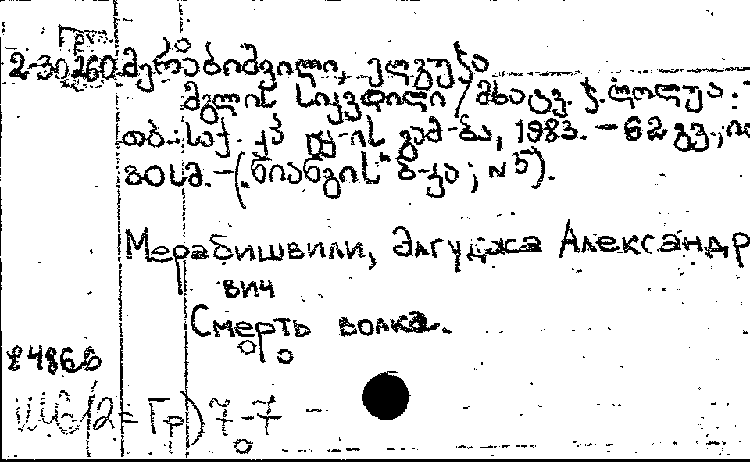 Груз.
2-30260 მერაბიშვილი, ელგუჯა
მგლის სიკვდილი / მხატვ. ჯ. ლოლუა.:
თბ.: საქ. კპ ცკ-ის გამ-ბა, 1983. - 62 გვ.;
20 სმ. - („ნიანგის“ ბ-კა; N5).
Мерабишвили, Элгуджа Александр
вич
Смерть волка.
24866
Ш6(2=Гр) 7-7